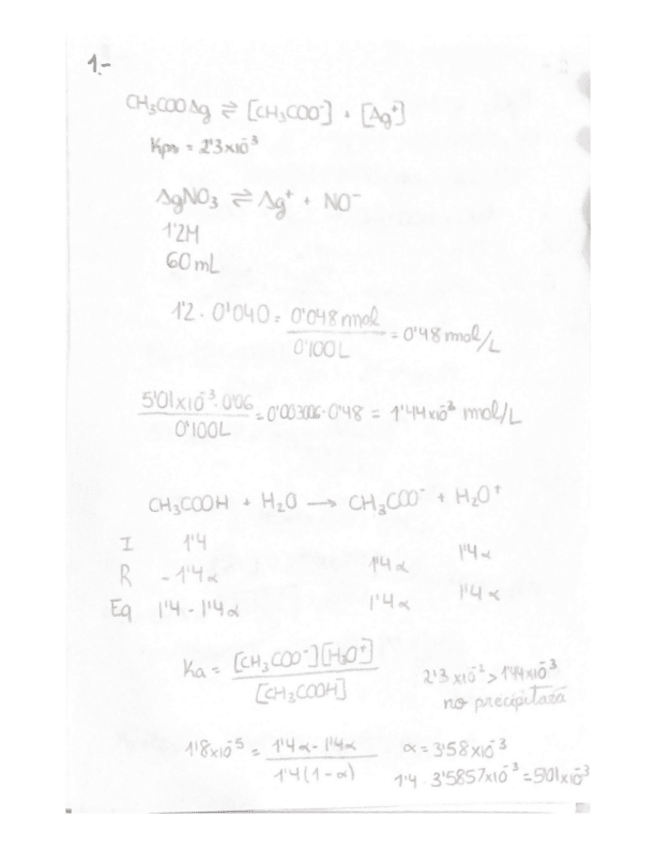 1.-
CH₃COOAg ⇌ [CH₃COO⁻] + [Ag⁺]
Kps = 2'3x10⁻³
AgNO₃ ⇌ Ag⁺ + NO⁻
1'2M
60mL
1'2 · 0'040 = 0'048 mol / 0'100L = 0'48 mol/L
5'01x10⁻³ · 0'06 / 0'100L = 0'003006 · 0'48 = 1'44x10⁻³ mol/L
CH₃COOH + H₂O → CH₃COO⁻ + H₂O⁺
I 1'4
R - 1'4α 1'4α 1'4α
Eq 1'4 - 1'4α 1'4α 1'4α
Ka = [CH₃COO⁻][H₃O⁺] / [CH₃COOH]
2'3x10⁻³ > 1'44x10⁻³
no precipitará
1'8x10⁻⁵ = 1'4α - 1'4α / 1'4(1-α)
α = 3'58x10⁻³
1'4 · 3'5857x10⁻³ = 5'01x10⁻³